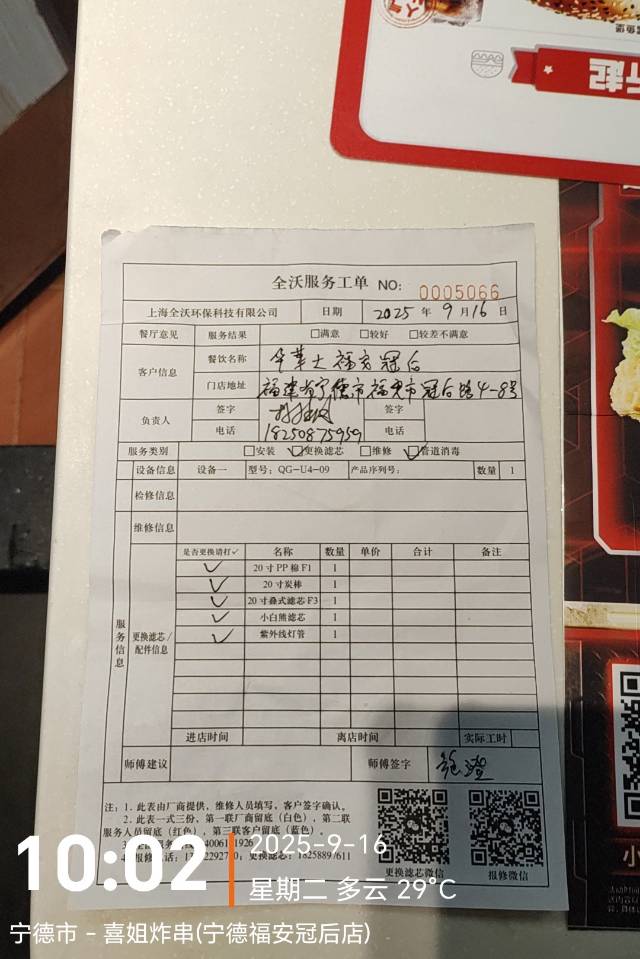 折起
全沃服务工单 NO: 0005066
上海全沃环保科技有限公司 日期 2025 年 9 月 16 日
餐厅意见 服务结果 □满意 □较好 □较差不满意
客户信息 餐饮名称 华莱士福安冠后
门店地址 福建省宁德市福安市冠后路4-8号
负责人 签字 签字
电话 18250875959 电话
服务类别 □安装 ☑更换滤芯 □维修 ☑管道消毒
设备信息 设备一 型号: QG-U4-09 产品序列号: 数量 1
检修信息
维修信息
服务信息 更换滤芯/配件信息
是否更换请打✓ 名称 数量 单价 合计 备注
✓ 20寸PP棉F1 1
✓ 20寸炭棒 1
✓ 20寸叠式滤芯F3 1
✓ 小白熊滤芯 1
✓ 紫外线灯管 1
进店时间 离店时间 实际工时
师傅建议 师傅签字
注: 1. 此表由厂商提供，维修人员填写，客户签字确认。
2. 此表一式三份，第一联厂商留底（白色），第二联
服务人员留底（红色），第三联客户留底（蓝色）。
更换滤芯: 18258897611
更换滤芯微信 报修微信
10:02
2025-9-16
星期二 多云 29°C
宁德市 - 喜姐炸串(宁德福安冠后店)
小